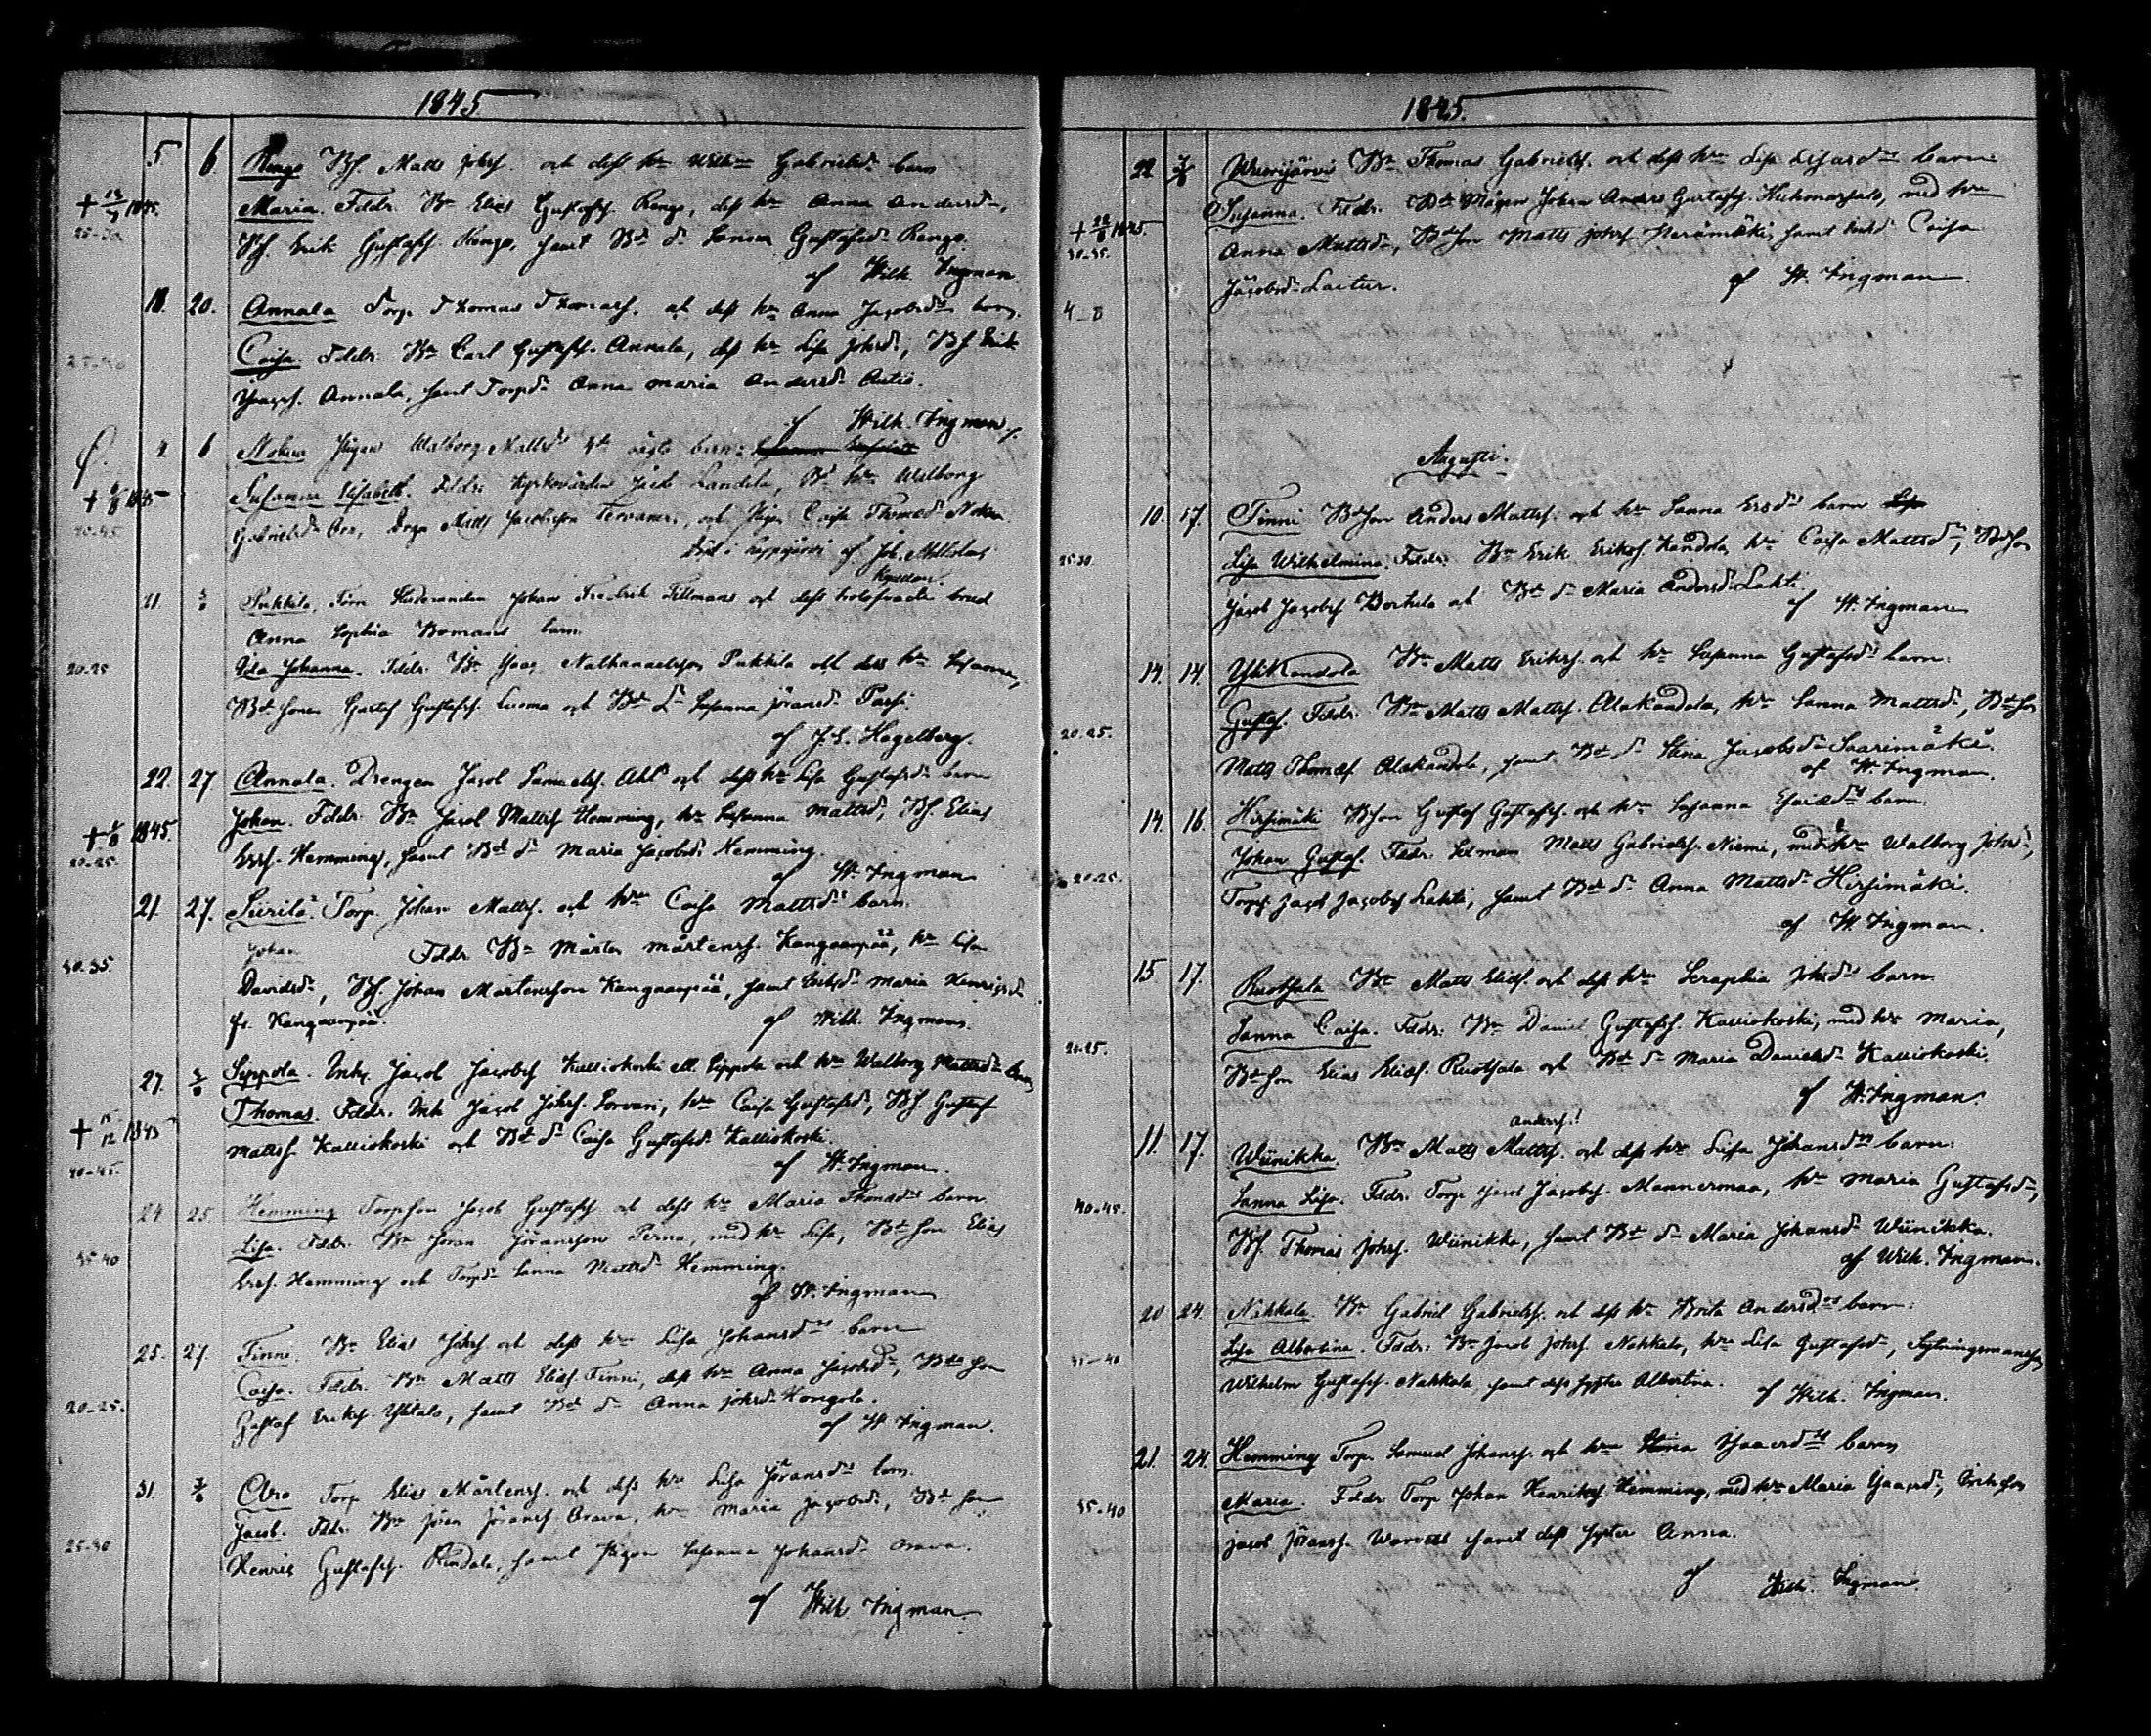 1845.
5 6. Rengo Bs. Matts Johss. och dess hu Wilh:na Gabrielsd:r barn
+ 13/7 1845. Maria. Fddr. Bn Elias Gustafss. Rengo, dess hu Anna Andersd:r,
25-30 Bs. Erik Gustafss. Rengo, samt Bd. d:r Sanna Gustafsd:r Rengo.
af Wilh. Ingman.
18. 20. Annala Torp. Thomas Thomass. och dess hu Anna Jacobsd:rs barn.
Caisa. Fddr. Bn Carl Gustafss. Annala, dess hu Lisa Johsd:r, Bs. Erik
25-30 Annala, samt Torpd:r Anna Maria Andersd:r Autio.
af Wilh. Ingman.
4. 6 Pigan Walborg Mattsd:rs barn:
+ 1845 Susanna Elisabeth. Fddr. Kyrkovärden Landela, Bd. hu Walborg
40-45 Gabrielsd:r Matts Jacobsson och Pigan Caisa Thomasd:r
Döpt i Lappajärvi af Joh.
21. 3/8 Pukkila, Johan Fredrik Tillmans och dess trolofvade brud
Anna Sophia Bomans barn
20-25 Ida Johanna. Fddr. Bn Isac Nathanaelsson Pukkila och dess hu Susanna,
Bd. sonen Gustaf Gustafss. Luoma och Bd. d:r Susanna Jöransd:r Passi.
af J. S. Hagelberg.
22. 27 Annala. Drengen Jacob Samuelss. och dess hu Lisa Gustafsd:r barn
+ 1/8 1845. Johan. Fddr. Bn Jacob Mattss. Hemming, hu Susanna Mattsd:r, Bs. Elias
20-25. Erss. Hemming, samt Bd. d:r Maria Jacobsd:r Hemming.
af W. Ingman
21. 27. Torp. Johan Mattss. och hu Caisa Mattsd:rs barn.
Johan Fddr Bn Mårten Mårtenss. Kangaanpää, hu Lisa
30-35. Davidsd:r, Bs. Johan Mårtensson Kangaanpää, samt Maria Henriksd:r
fr. Kangaanpää. af Wilh. Ingman.
27. 3/8 Sippola. Inh. Jacob Jacobss Kalliokoski ell. Sippola och hu Walborg Mattsd:r barn
+ 15/12 1845 Thomas. Fddr. Inh. Jacob Johss. Porvari, hu Caisa Gustafsd:r, Bs. Gustaf
40-45. Mattss. Kalliokoski och Bd. d:r Caisa Gustafsd:r Kalliokoski.
af W. Ingman.
24 25 Hemming Torpson Jacob Gustafss och dess hu Maria Thomasd:rs barn
35-40 Lisa. Fddr. Bn Jöran Jöransson Perna, med hu Lisa, Bd. son Elias
Erss. Hemming och Torpd:r Sanna Mattsd:r Hemming.
af W. Ingman
25. 27 Finni. Bn Elias Johss. och dess hu Lisa Johansd:rs barn
Caisa. Fddr. Bn Matts Eliass. Finni, dess hu Anna Jacobsd:r, Bd. son
20-25. Gustaf Erikss. Ylitalo, samt Bd. d:r Anna Johsd:r Hongola.
af W. Ingman.
31. 3/8 Torp Elias Mårtenss. och dess hu Lisa Jöransd:rs barn.
Jacob. Fddr. Bn Jöran Jöranss. Orava, hu Maria Jacobsd:r, Bd. son
25-30 Henric Gustafss. Rindala, samt Pigan Susanna Johansd:r Orava.
af Wilh. Ingman.
1845.
22 3/8 Wuorijärvi Bn Thomas Gabrielss. och dess hu Lisa barn:
+ 22/8 1845. Susanna. Fddr. Bd. Mågen Johan Anders Gustafss. med hu
30-35. Anna Mattsd:r, Bd. son Matts Johss. Perämäki, samt Caisa
Jacobsd:r Laitur. af W. Ingman.
4-8
Augusti.
10. 17. Finni Bdson Anders Mattss. och hu Sanna Ersd:rs barn
25-30. Lisa Wilhelmina. Fddr. Bn Erik Erikss. Kandola, hu Caisa Mattsd:r, Bdson
Jacob Jacobss och Bd. d:r Maria Andersd:r Lahti.
af W. Ingman
14. 14. Ylikandola Bn Matts Erikss. och hu Susanna Gustafsd:rs barn:
Gustaf. Fddr. Bn Matts Mattss. Alakandola, hu Sanna Mattsd:r, Bdson
20-25. Matts Thomass Alakandola, samt Bd. d:r Stina Jacobsd:r Saarimäki.
af W. Ingman.
14. 16. Hirsimäki Bson Gustaf Gustafss. och hu Susanna barn.
Johan Gustaf. Fddr. Matts Gabrielss. Niemi, med hu Walborg Johsd:r,
20-25. Torps. Jacob Jacobss Lahti, samt Bd. d:r Anna Mattsd:r Hirsimäki.
af W. Ingman.
15 17. Ruotsala Bn Matts Eliass. och dess hu Seraphia Johsd:rs barn
Sanna Caisa. Fddr. Bn Daniel Gustafss. Kalliokoski, med hu Maria,
20-25. Bd. son Elias Eliass. Ruotsala och Bd. d:r Maria Danielsd:r Kalliokoski.
af W. Ingman.
Anderss.!
11. 17. Wiinikka. Bn Matts Mattss. och dess hu Lisa Johansd:rs barn.
40-45. Sanna Lisa. Fddr. Torp. Jacob Jacobss. Mannermaa, hu Maria Gustafsd:r,
Bs. Thomas Johss. Wiinikka, samt Bd. d:r Maria Johansd:r Wiinikka.
af Wilh. Ingman.
20 24. Nahkala Bn Gabriel Gabrielss. och dess hu Brita Andersd:rs barn:
35-40 Lisa Albertina. Fddr: Bn Jacob Johss. Nahkala, hu Lisa Gustafsd:r, Sytningsmansson
Wilhelm Gustafss. Nahkala, samt dess syster Albertina. af Wilh. Ingman.
21. 24. Hemming Torp. Samuel Johanss. och hu Stina Isaacsd:rs barn
35-40 Maria. Fddr Torp Johan Henrikss Hemming, med hu Maria Isaacsd:r,
Jacob Jöranss. samt dess syster Anna.
af Wilh. Ingman.